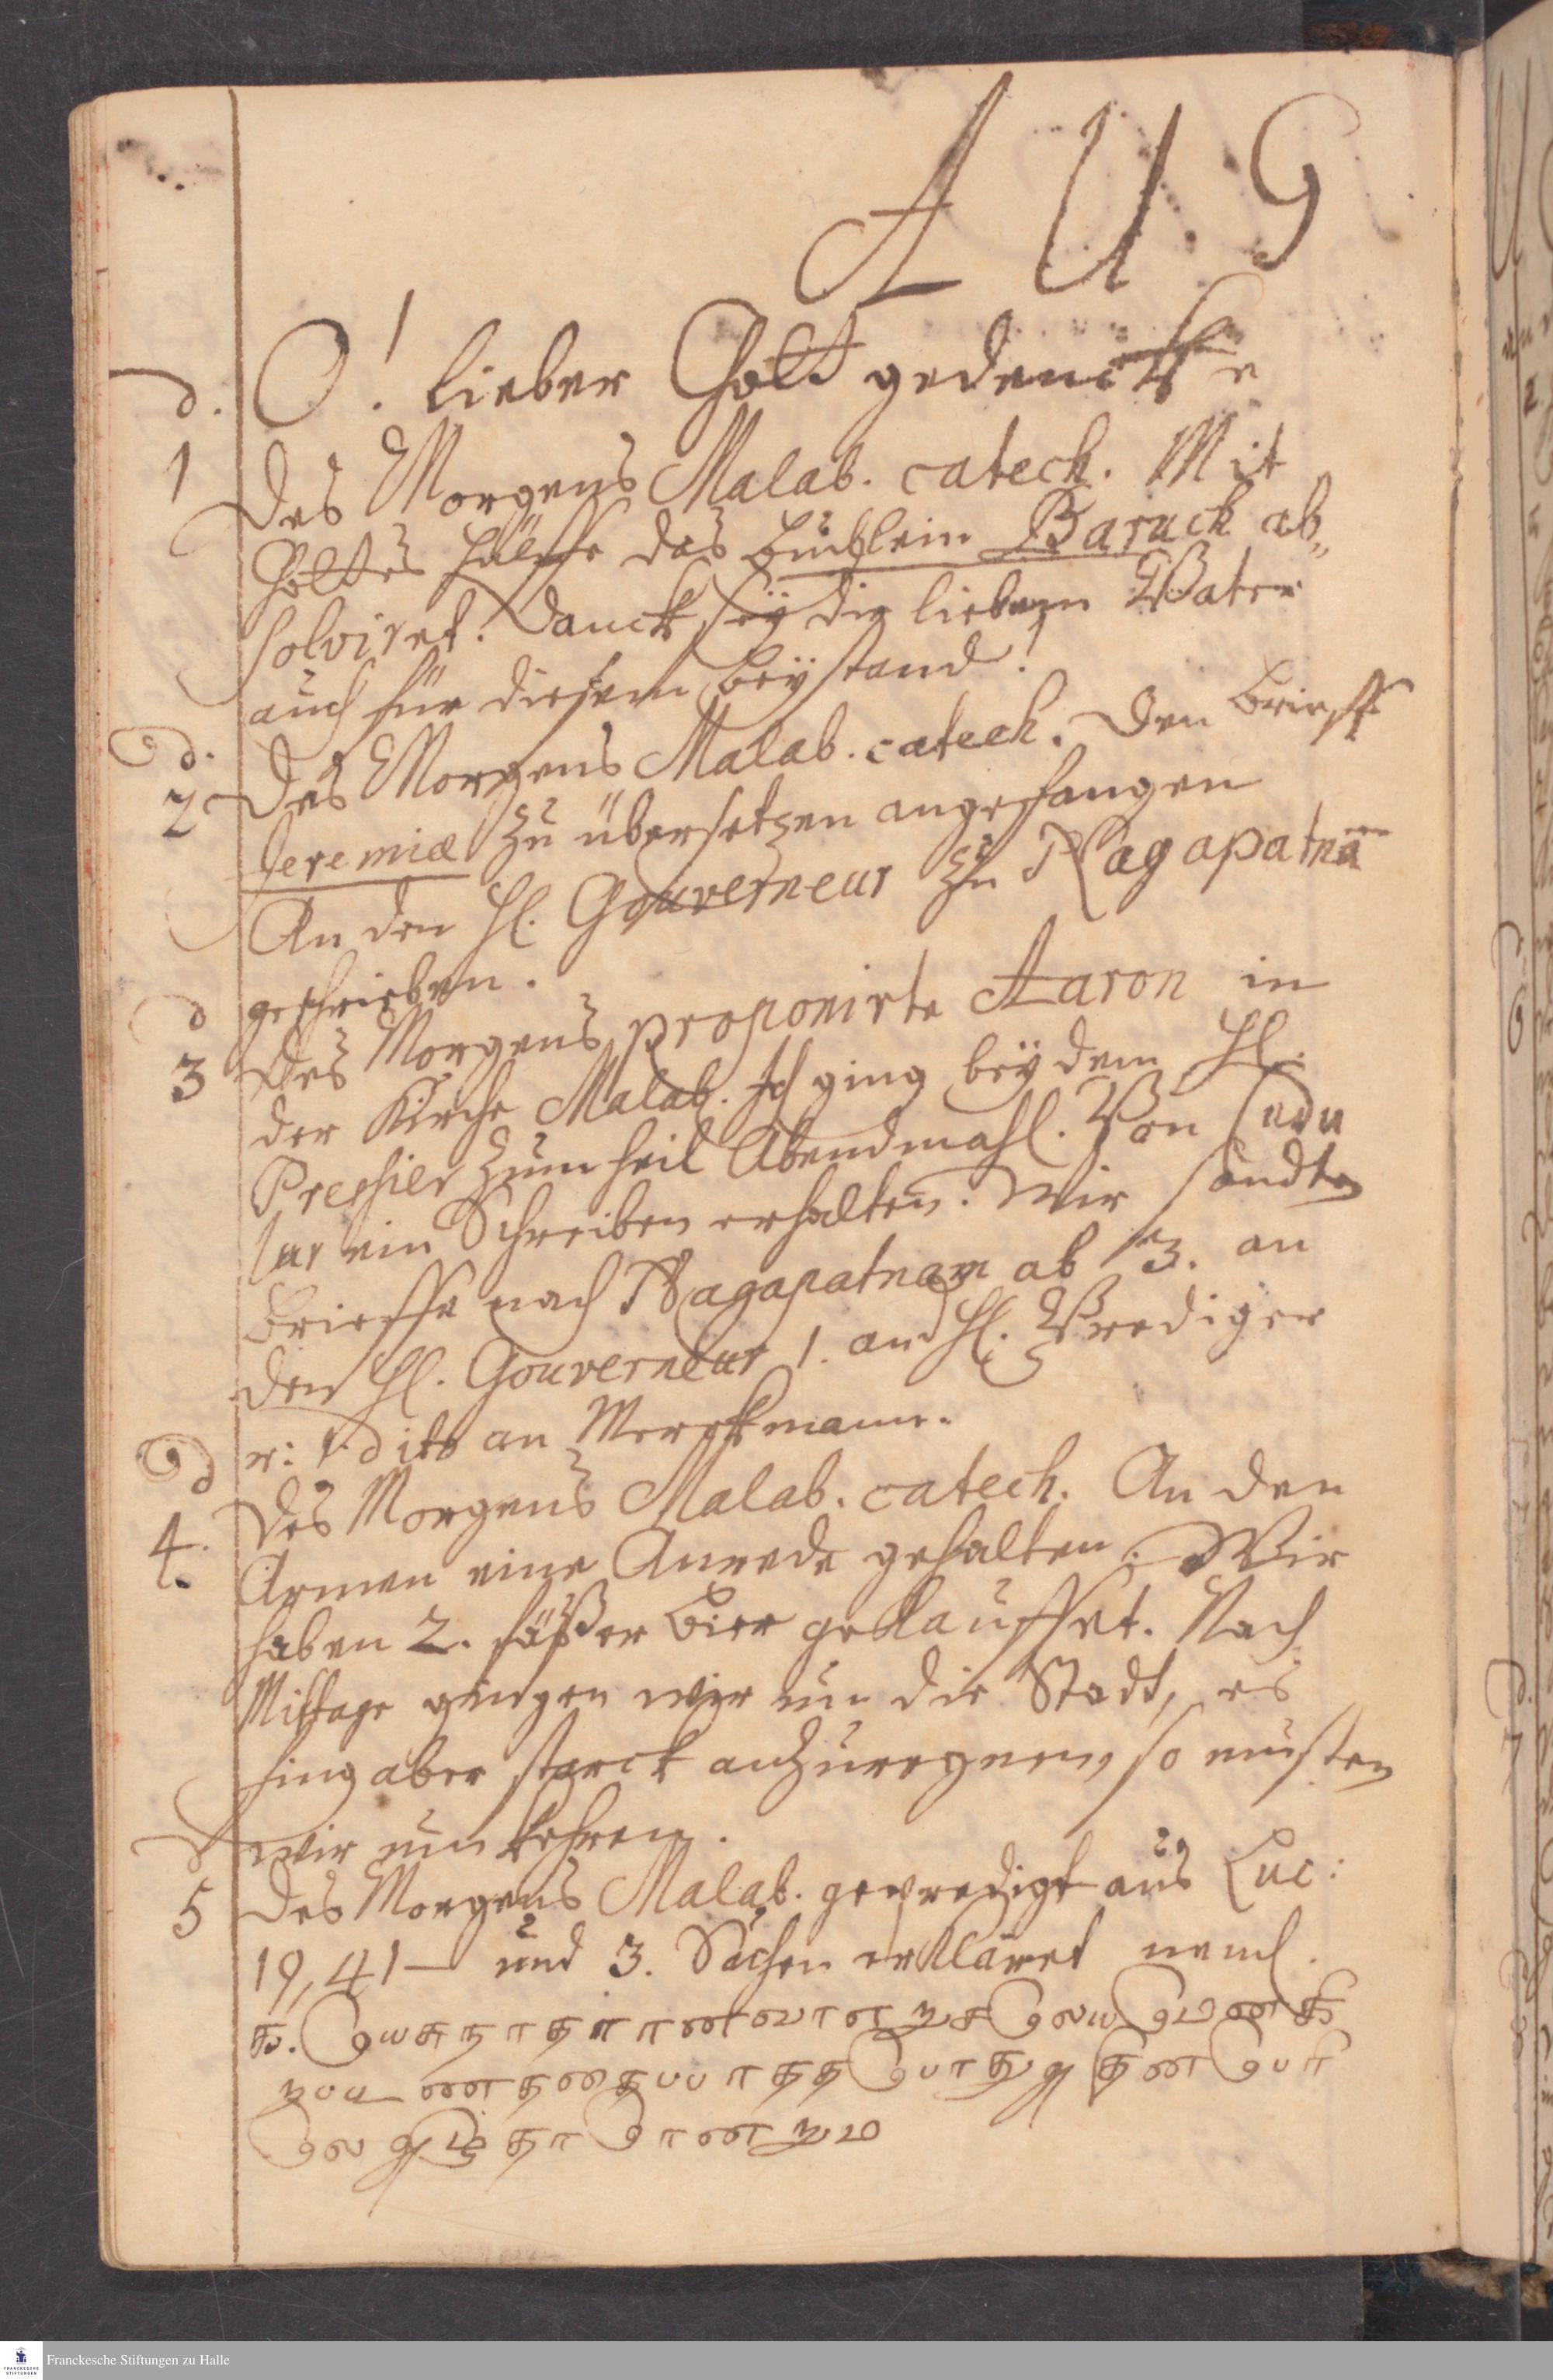 A U G
O! lieber Gott gedencke
d. 1 Des Morgens Malab. catech. Mit
Gottes hülffe das büchlein Baruch ab„
solviret. Danck sey dir lieber Vater
auch für diesem beystand!
d. 2 Des Morgens Malab. catech. Den brieff
Jeremiæ zu übersetzen angefangen
An den Hl. Gouverneur zu Nagapatnā
geschrieben.
d 3 Des Morgens proponirte Aaron in
der Kirche Malab. Ich ging bey dem Hl.
Pressier zum heil Abendmahl. Von Sudu
sur ein Schreiben erhalten. Wir sandten
brieffe nach Nagapatnam ab 3. an
den Hl. Gouverneur 1. an Hl. Prediger
u: 1. dito an Werckmann.
d 4. Des Morgens Malab. catech. An den
Armen eine Anrede gehalten. Wir
haben 2. fäßer bier gekauffet. Nach
Mittage gingen wir um die Stadt, es
fing aber starck an zu regnen, so musten
wir um kehren.
d 5 Des Morgens Malab. geprediget aus Luc:
19, 41 — und 3. Sachen erkläret neml.
Franckesche Stiftungen zu Halle